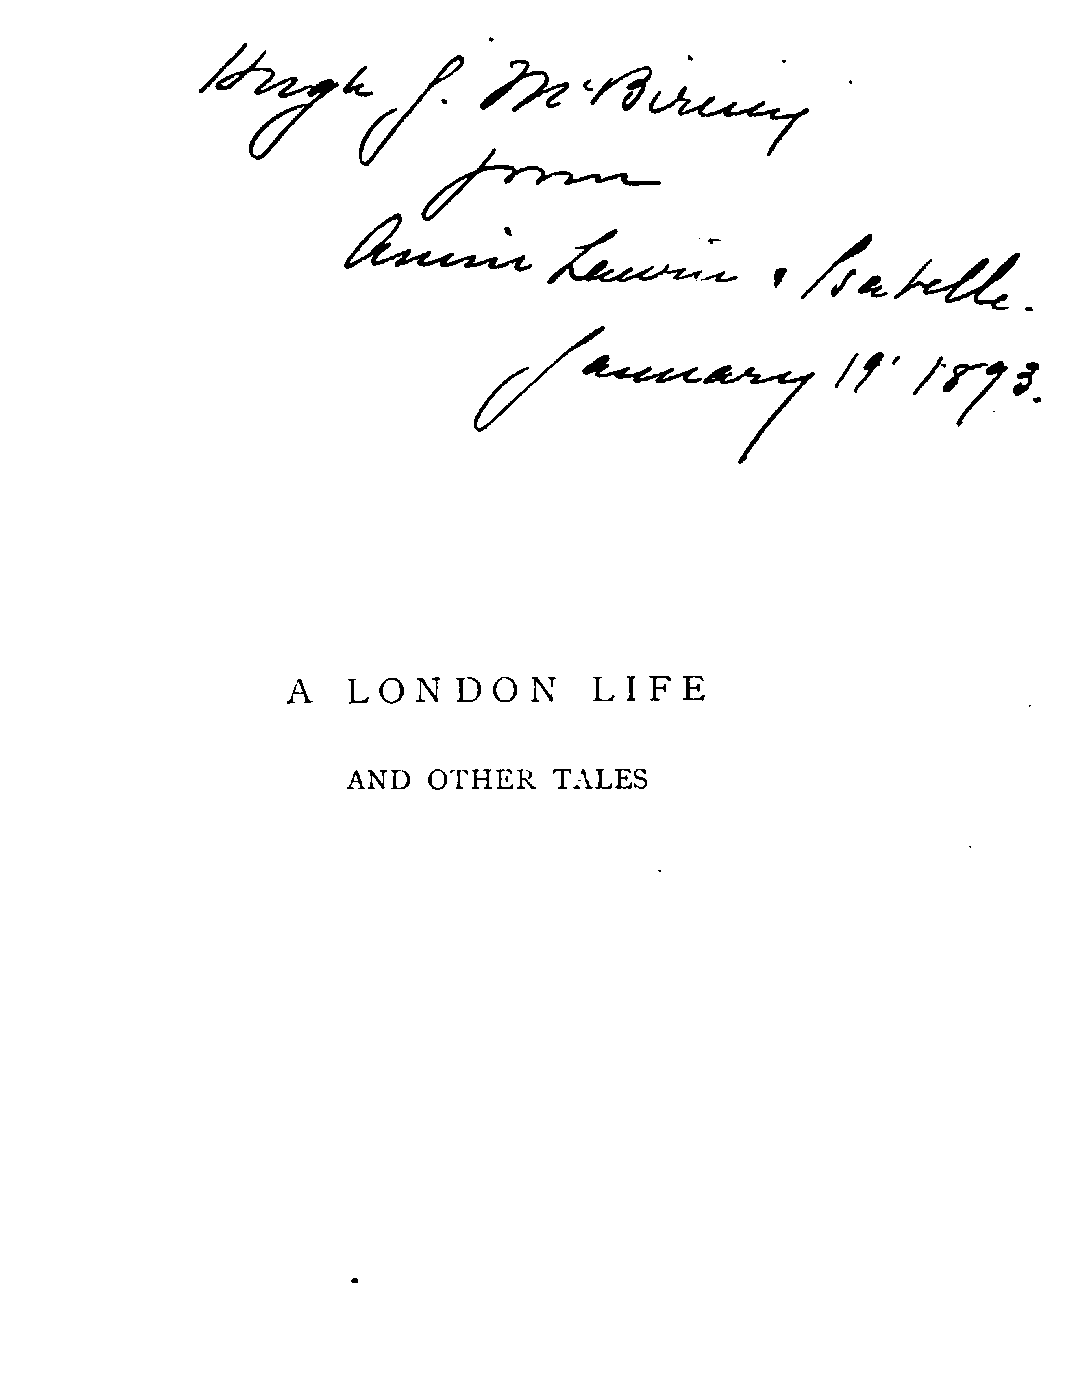 Hugh J. McBirney
from
Annie Laurie & Isabelle.
January 19' 1893.
A LONDON LIFE
AND OTHER TALES